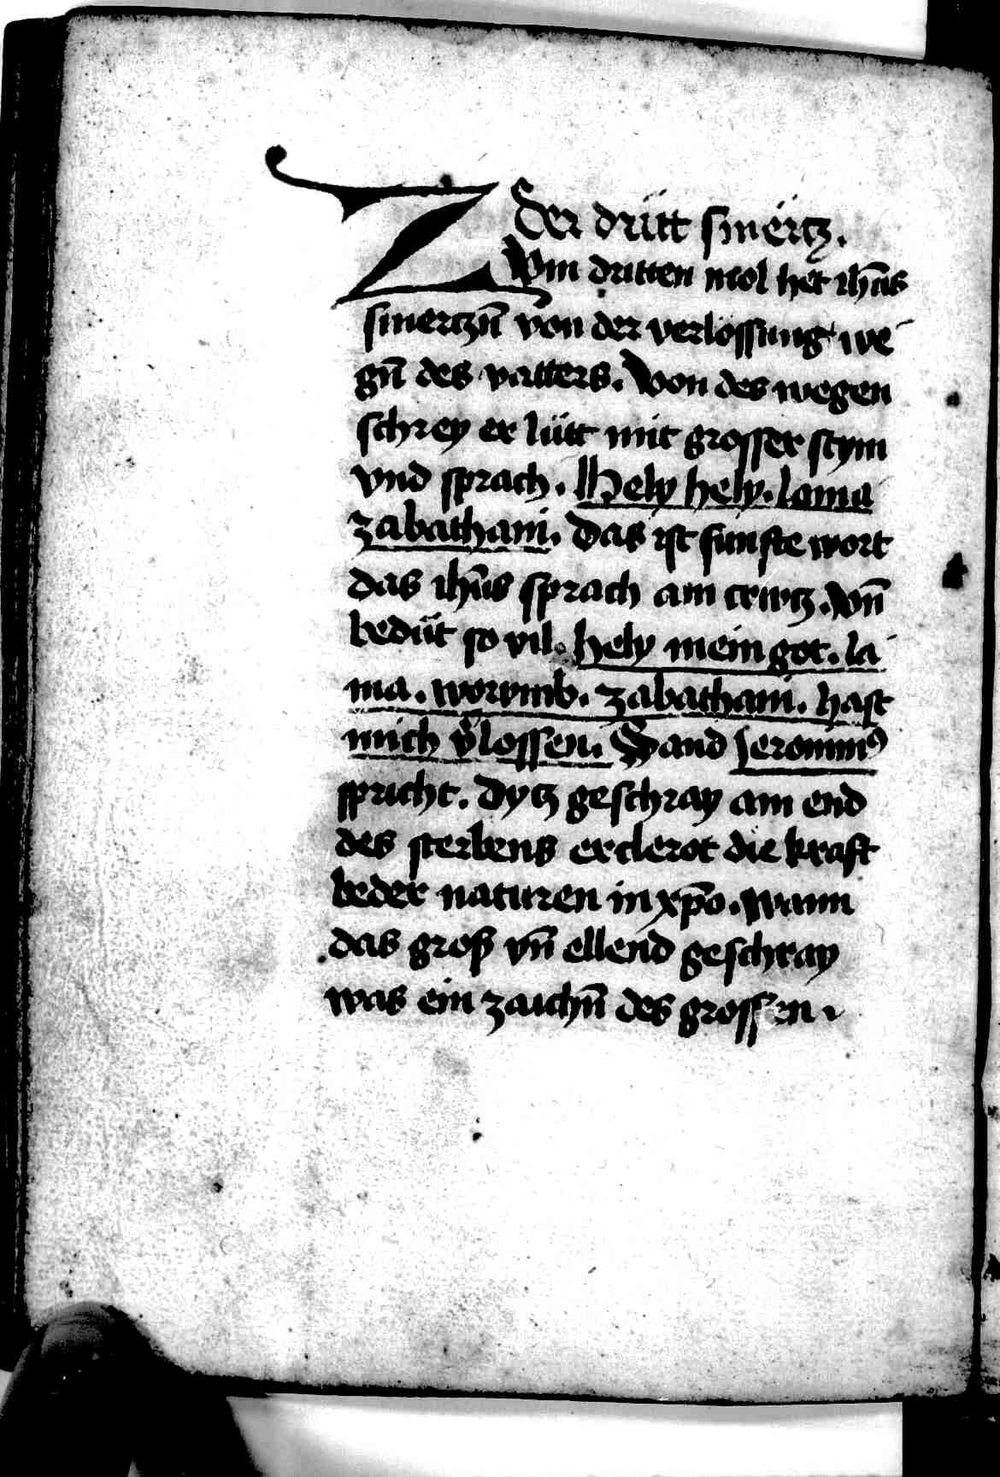 Der dritt smërtz.
ZVm dritten mol het ihūs
smertzn̄ von der verlossung we
gn̄ des vatters. Von des wegen
schrey er lütt mit grosser stym
vnd sprach. Hely hely. lama
zabathani. Das ist funfte wort
das ihūs sprach am crütz. Vn̄
bedüt so vil. hely mein got. la
ma. worvmb. zabathani. hast
mich v̓lossen. Wand Jeronim⁹
spricht. Dytz geschray am end
des sterbens erclerot die kraft
beder naturen in xp̄o. Wann
das groß vn̄ ellend geschray
was ein zaichn̄ des grossen